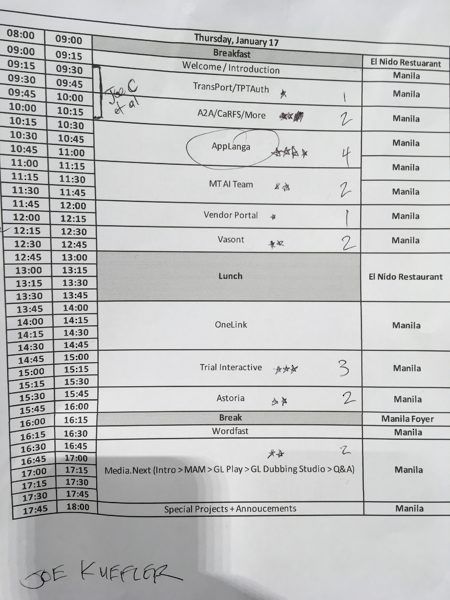 Thursday, January 17
08:00 09:00 Breakfast El Nido Restuarant
09:00 09:15
09:15 09:30 Welcome / Introduction Manila
09:30 09:45 TransPort/TPTAuth 1 Manila
09:45 10:00
Joe C
et al
10:00 10:15 A2A/CaRFS/More 2 Manila
10:15 10:30
10:30 10:45 AppLanga 4 Manila
10:45 11:00
11:00 11:15 Manila
11:15 11:30 MT AI Team 2
11:30 11:45 Manila
11:45 12:00 Vendor Portal 1 Manila
12:00 12:15
12:15 12:30 Vasont 2 Manila
12:30 12:45
12:45 13:00 Lunch El Nido Restaurant
13:00 13:15
13:15 13:30
13:30 13:45
13:45 14:00 OneLink Manila
14:00 14:15
14:15 14:30
14:30 14:45
14:45 15:00 Trial Interactive 3 Manila
15:00 15:15
15:15 15:30
15:30 15:45 Astoria 2 Manila
15:45 16:00
16:00 16:15 Break Manila Foyer
16:15 16:30 Wordfast Manila
16:30 16:45 2
16:45 17:00 Media.Next (Intro > MAM > GL Play > GL Dubbing Studio > Q&A) Manila
17:00 17:15
17:15 17:30
17:30 17:45
17:45 18:00 Special Projects + Annoucements Manila
JOE KUEFLER